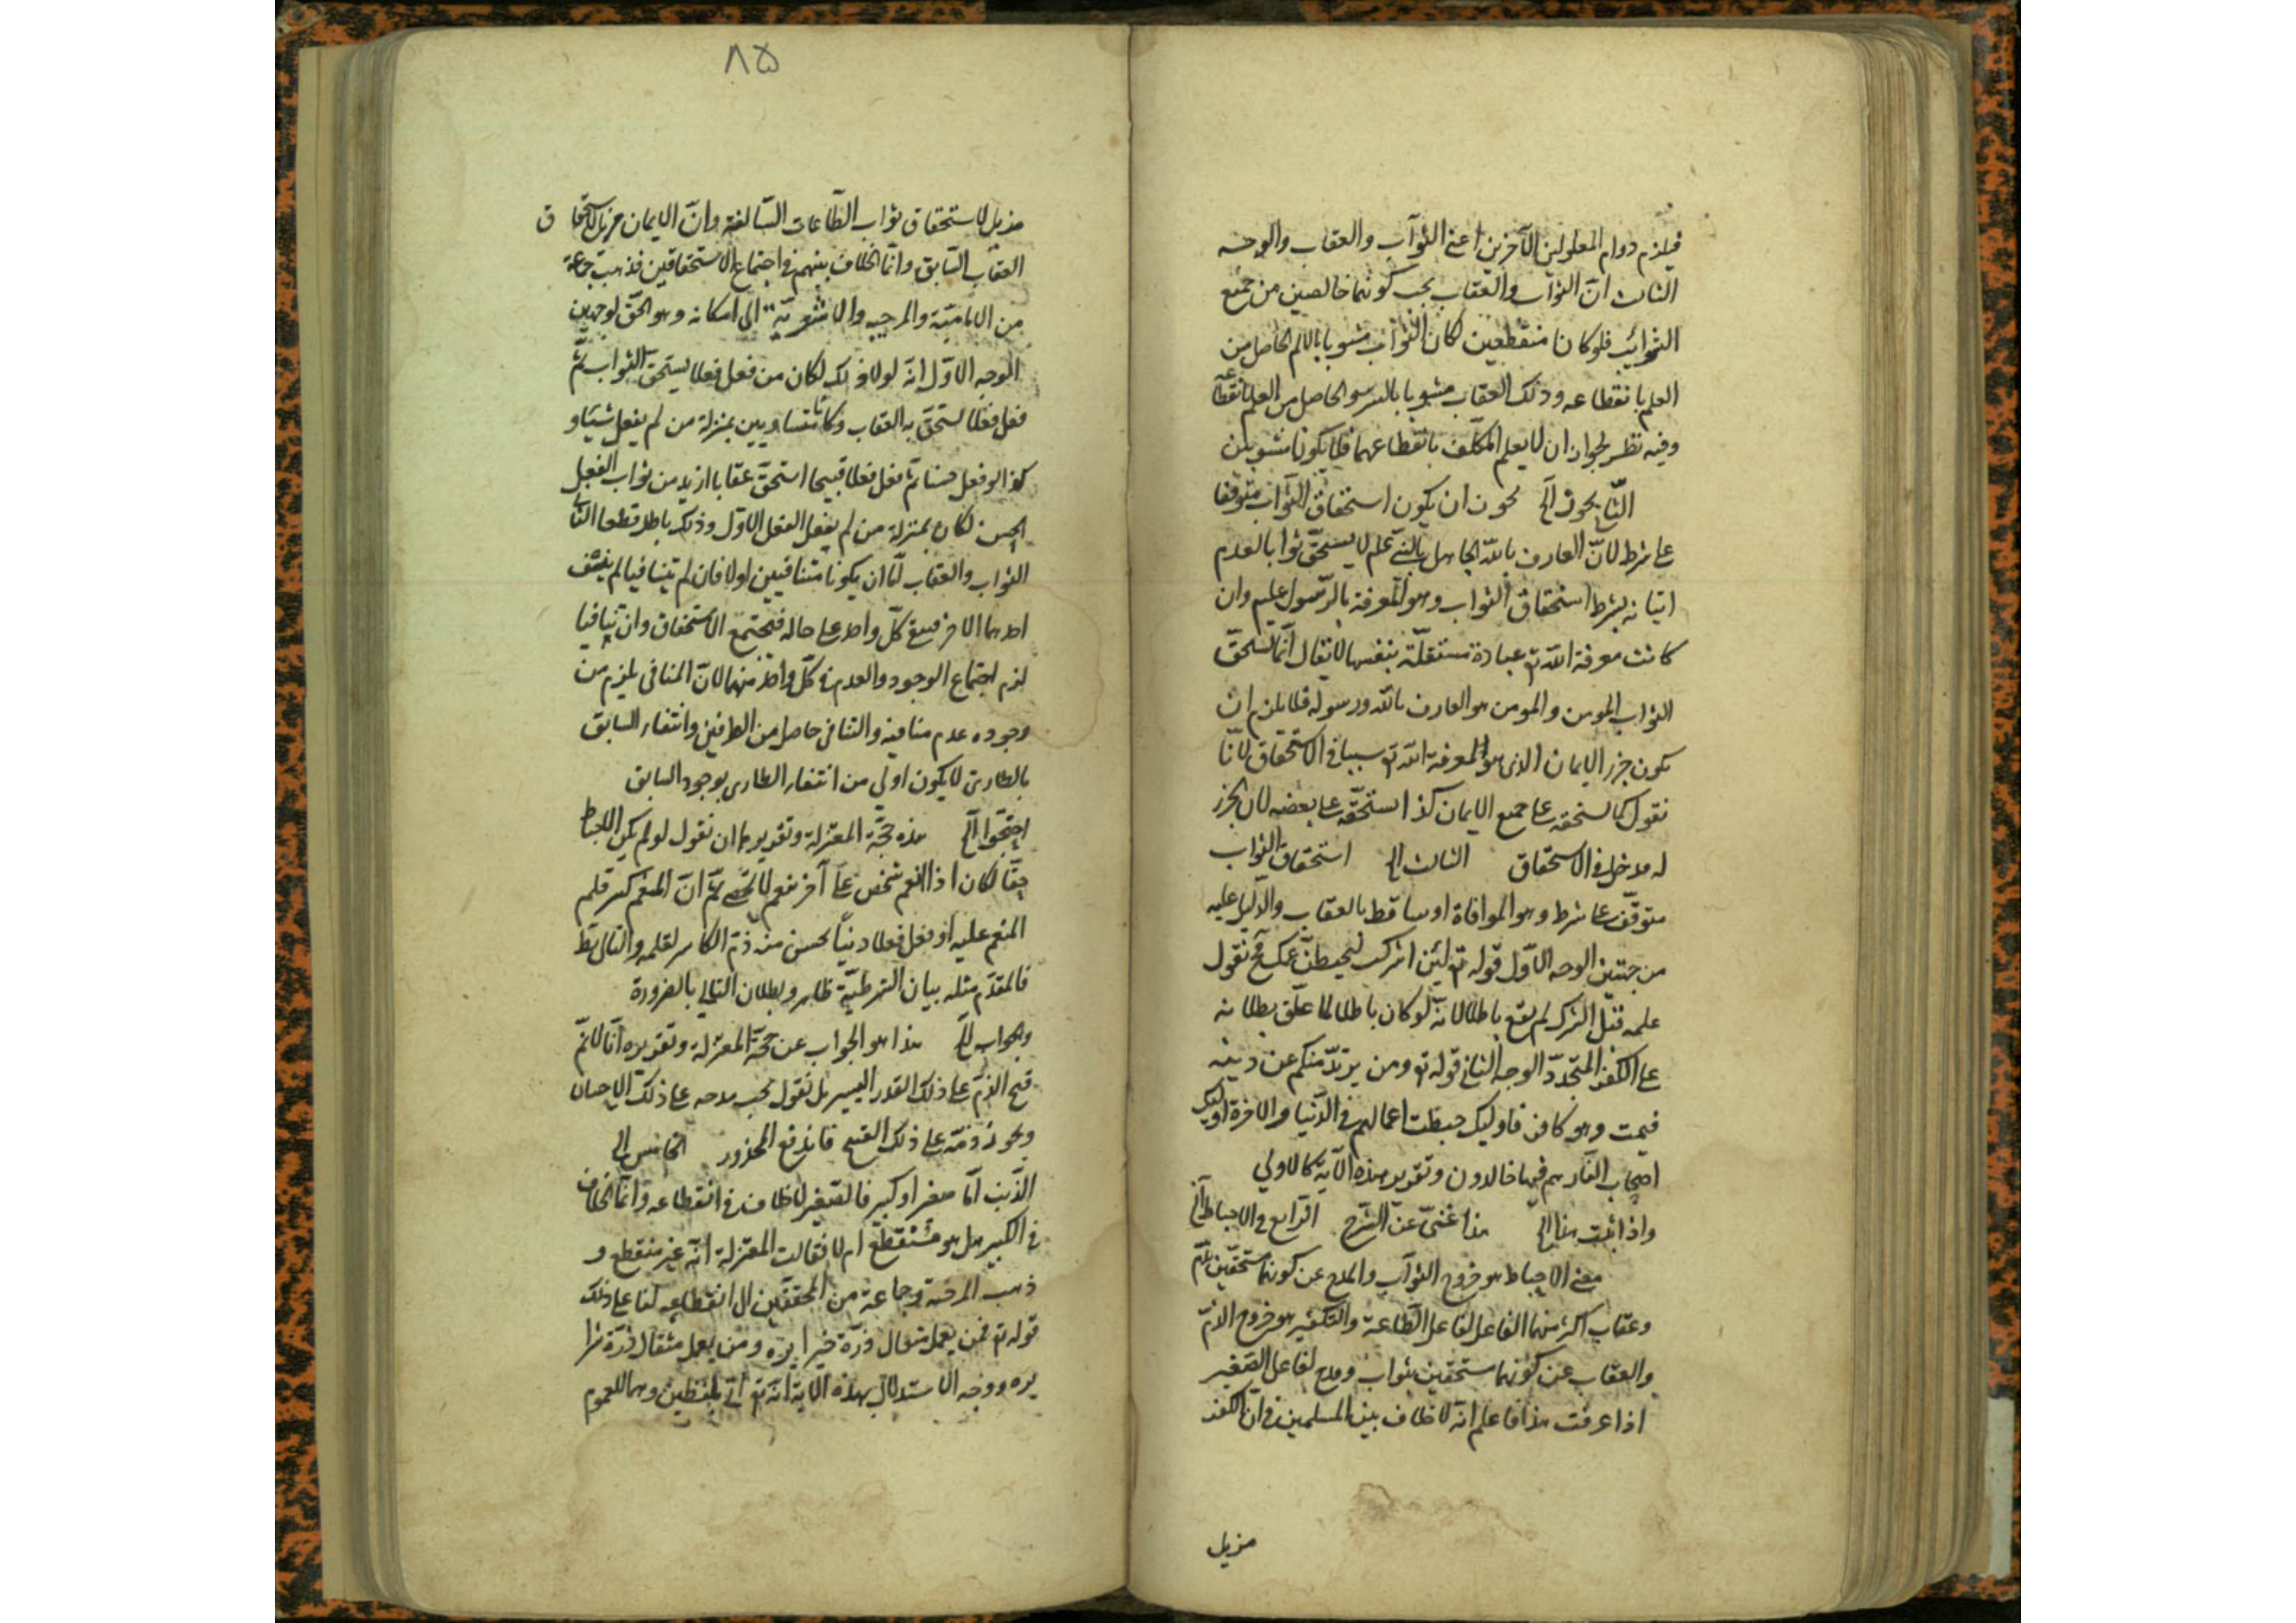 فيلزم دوام المعلولين الآخرين اعنى الثواب والعقاب والوجه
الثالث انّ الثواب والعقاب يجب كونهما خالصين من جميع
الشوائب فلو كانا منقطعين كان الثواب مشوبا بالالم الحاصل من
العلم بانقطاعه وذلك العقاب مشوبا بالسرور الحاصل من العلم بانقطاعه
وفيه نظر لجواز ان لا يعلم المكلّف بانقطاعهما فلا يكونا مشوبين
الثانى يجوز الخ يجوز ان يكون استحقاق الثواب متوقفا
على شرط لانّ العارف باللّه الجاهل بالنبى عليه السلم لا يستحقّ ثوابا لعدم
اتيانه بشرط استحقاق الثواب وهو المعرفة بالرّسول عليه السلم وان
كانت معرفة اللّه تع عبادة مستقلّة بنفسها لا يقال انّما يستحقّ
الثواب المومن والمومن هو العارف باللّه ورسوله فلا يلزم ان
يكون جزء الايمان الذى هو المعرفة اللّه تع سببا فى الاستحقاق لانّا
نقول كما يستحقه على جميع الايمان كذا يستحقّه على بعضه لان الجزء
له مدخل فى الاستحقاق الثالث الخ استحقاق الثواب
متوقّف على شرط وهو الموافاة او ساقط بالعقاب والدّليل عليه
من جهتين الوجه الاوّل قوله تع لئن اشركت ليحبطنّ عملك فح نقول
عمله قبل الشرك لم يقع باطلا لانّه لو كان باطلا لما علّق بطلانه
على الكفر المتجدّد الوجه الثانى قوله تع ومن يرتدّ منكم عن دينه
فيمت وهو كافر فاوليك حبطت اعمالهم فى الدّنيا والاخرة واوليك
اصحاب النّار هم فيها خالدون وتقرير هذه الآية كالاولى
واذا ثبت هذا الخ هذا غنىّ عن الشّرح الرّابع فى الاحباط الخ
معنى الاحباط هو خروج الثواب والمدح عن كونهما مستحقّين بذمّ
وعقاب اكثر منهما الفاعل لفاعل الطّاعة والتكفير هو خروج الذمّ
والعقاب عن كونهما مستحقين بثواب ومدح لفاعل الصّغير
اذا عرفت هذا فاعلم انّه لا خلاف بين المسلمين فى انّ الكفر
مزيل
٨٥
مزيل لاستحقاق ثواب الطّاعات السّالفة وانّ الايمان مزيل لاستحقاق
العقاب السّابق وانّما الخلاف بينهم فى اجتماع الاستحقاقين فذهبت جماعة
من الاماميّة والمرجيه والاشعريّة الى امكانه وهو الحقّ لوجهين
الوجه الاوّل انّه لولا ذلك لكان من فعل فعلا يستحقّ الثواب ثمّ
فعل فعلا يستحقّ به العقاب وكانا متساويين بمنزلة من لم يفعل شيئا و
كذا لو فعل حسنا ثمّ فعل فعلا قبيحا استحقّ عقابا ازيد من ثواب الفعل
الحسن لكان بمنزلة من لم يفعل الفعل الاوّل وذلك باطل قطعا الثانى
الثواب والعقاب امّا ان يكونا متنافيين اولا فان لم يتنافيا لم ينتف
احدهما الاخر فيبقى كلّ واحد على حاله فيجتمع الاستحقاق وان تنافيا
لزم اجتماع الوجود والعدم فى كلّ واحد منهما لانّ المنافى يلزم من
وجوده عدم منافيه والتنافى حاصل من الطرفين وانتفاء السابق
بالطارى لا يكون اولى من انتفاء الطارى بوجود السابق
احتجّوا الخ هذه حجّة المعتزلة وتقريرها ان نقول لو لم يكن الاحباط
حقّا لكان اذا انعم شخص على آخر بنعم لا تحصى ثمّ انّ المنعم كسر قلم
المنعم عليه او فعل فعلا دنيّا يحسن منه ذمّ الكاسر لقلمه والتالى بط
فالمقدّم مثله بيان الشرطيّة ظاهر وبطلان التالى بالضرورة
والجواب الخ هذا هو الجواب عن حجّة المعتزلة وتقريره انّا لا نمّ
قبح الذمّ على ذلك القدر اليسير بل نقول يجب مدحه على ذلك الاحسان
ويجوز ذمّه على ذلك القبيح فاندفع المحذور الخامس الخ
الذّنب امّا صغير او كبير فالصّغير لا خلاف فى انقطاعه وانّما الخلاف
فى الكبير هل هو منقطع ام لا فقالت المعتزلة انّه غير منقطع و
ذهب المرجئة وجماعة من المحقّقين الى انقطاعه لنا على ذلك
قوله تع فمن يعمل مثقال ذرّة خيرا يره ومن يعمل مثقال ذرّة شرا
يره ووجه الاستدلال بهذه الآية انّه تع اتى بلفظين وهما للعموم